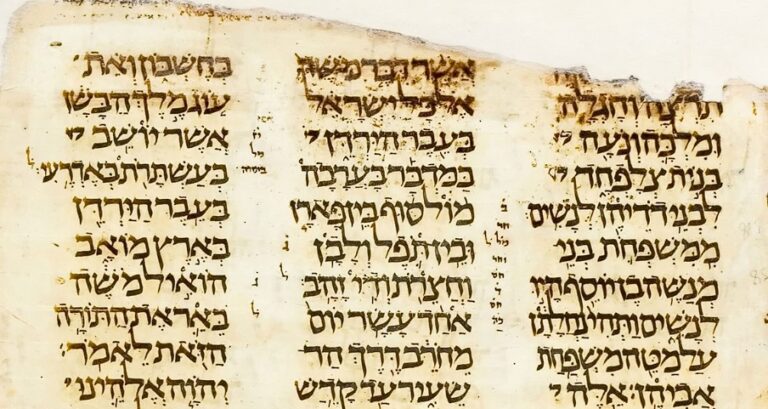 תרצה וחגלה
ומלכה ונעה
בנות צלפחד
לבני דדיהן לנשים
ממשפחת בני
מנשה בן יוסף היו
לנשים ותהי נחלתן
על מטה משפחת
אביהן אלה
אשר דבר משה
אל כל ישראל
בעבר הירדן
במדבר בערבה
מול סוף בין פארן
ובין תפל ולבן
וחצרת ודי זהב
אחד עשר יום
מחרב דרך הר
שעיר עד קדש
בחשבון ואת
עוג מלך הבשן
אשר יושב
בעשתרת באדרעי
בעבר הירדן
בארץ מואב
הואיל משה
באר את התורה
הזאת לאמר
יהוה אלהינו